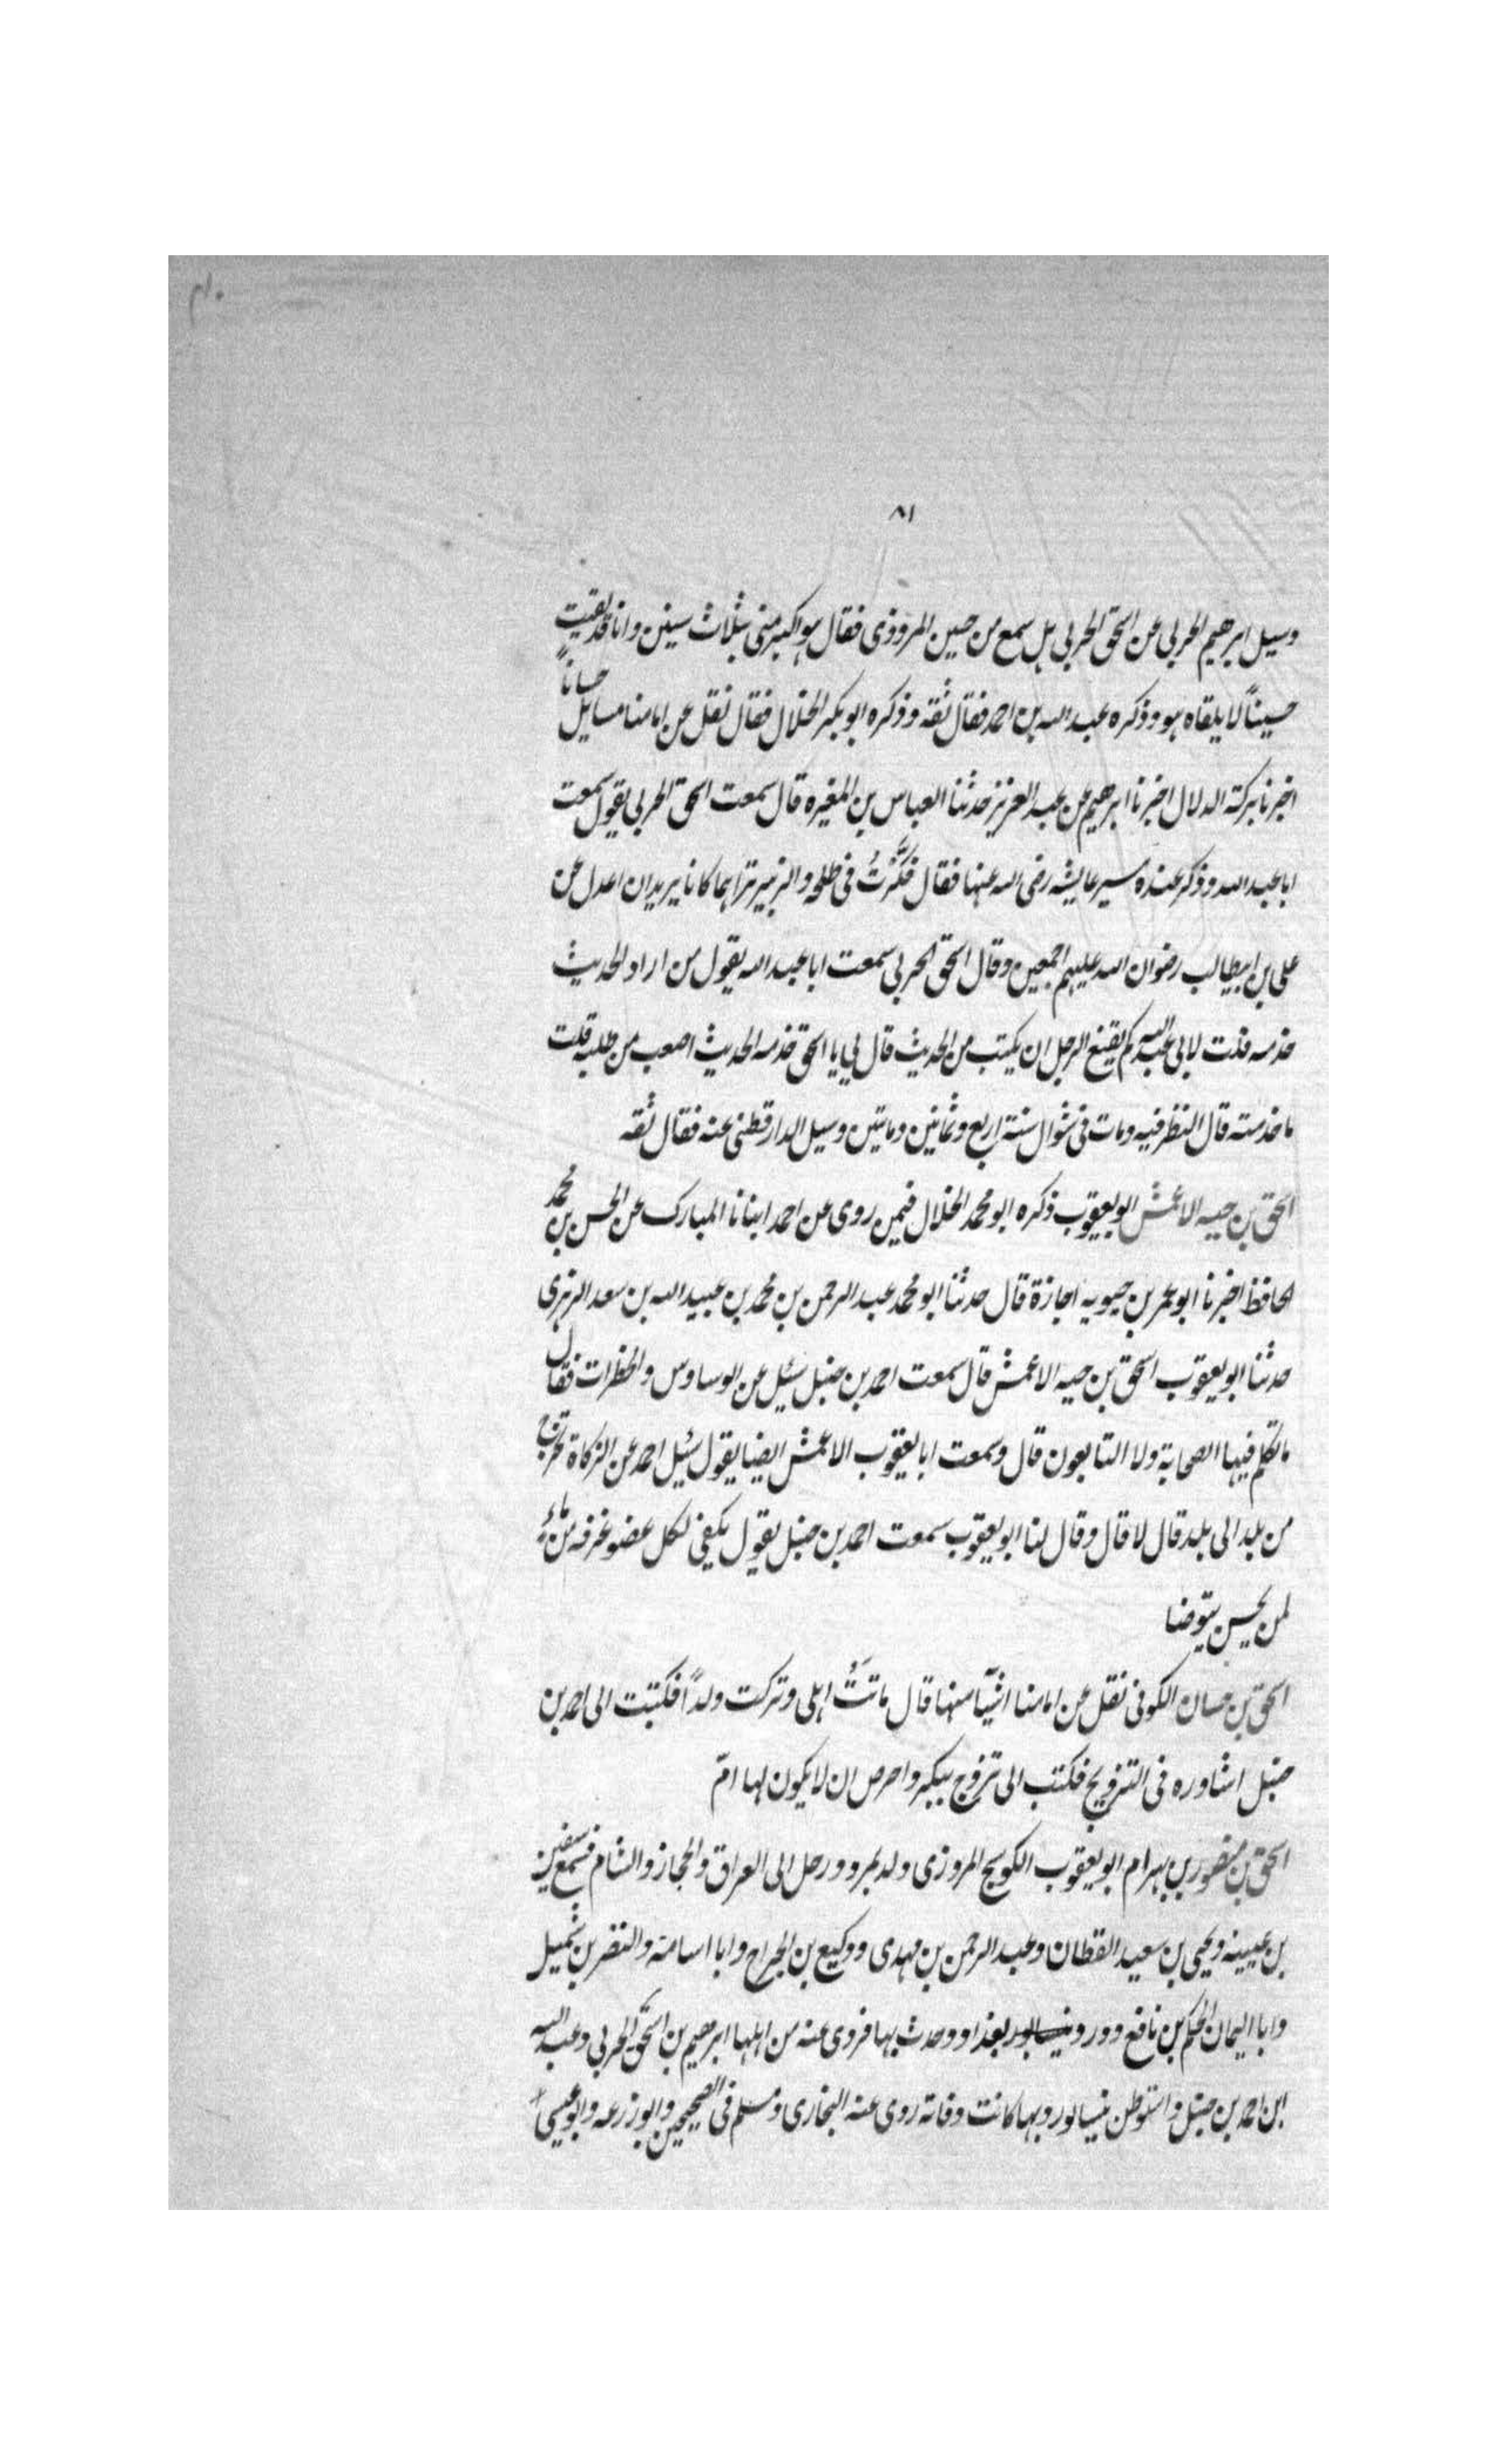 ٨١
وسيل ابرهيم الحربي عن اسحق الحربي هل سمع من حسين المروذى فقال هو اكبر منى بثلاث سنين وانا قد لقيت
حسيناً لا يلقاه هو وذكره عبد الله بن احمد فقال ثقه وذكره ابو بكر الخلال فقال نقل عن امامنا مسايل حساناً
اخبرنا بركة الدلال اخبرنا ابرهيم عن عبد العزيز حدثنا العباس بن المغيره قال سمعت اسحق الحربي يقول سمعت
ابا عبد الله وذكر عنده مسير عايشه رضى الله عنها فقال فكَّرْتُ فى طلحه والزبير تراهما كانا يريدان اعدل من
على بن ابيطالب رضوان الله عليهم اجمعين وقال اسحق الحربي سمعت ابا عبد الله يقول من اراد الحديث
خدمه قلت لابى عبد الله كم يقنع الرجل ان يكتب من الحديث قال لي يا اسحق خدمه الحديث اصعب من طلبه قلت
ما خدمته قال النظر فيه ومات فى شوال سنة اربع وثمانين وماتين وسيل الدارقطنى عنه فقال ثقه
اسحق بن حيه الاعمش ابو يعقوب ذكره ابو محمد الخلال فيمن روى عن احمد انبانا المبارك عن الحسن بن محمد
الحافظ اخبرنا ابو عمر بن حيويه اجازة قال حدثنا ابو محمد عبد الرحمن بن محمد بن عبيد الله بن سعد الزهرى
حدثنا ابو يعقوب اسحق بن حيه الاعمش قال سمعت احمد بن حنبل سئل عن الوساوس والخطرات فقال
ما تكلم فيها الصحابة ولا التابعون قال وسمعت ابا يعقوب الاعمش ايضا يقول سئيل احمد عن الزكاة تخرج
من بلد الى بلد قال لا قال وقال لنا ابو يعقوب سمعت احمد بن حنبل يقول يكفى لكل عضو غرفه من ماءٍ
لمن يحسن يتوضا
اسحق بن حسان الكوفى نقل عن امامنا اشيآ منها قال ماتتْ اهلى وتركت ولداً فكتبت الى احمد بن
حنبل اشاوره فى التزويج فكتب الى تزوج ببكر واحرص ان لا يكون لها امّ
اسحق بن منصور بن بهرام ابو يعقوب الكوسج المروزى ولد بمرو ورحل الى العراق والحجاز والشام فسمع سفين
بن عيينه ويحيى بن سعيد القطان وعبد الرحمن بن مهدى ووكيع بن الجراح وابا اسامة والنضر بن شميل
وابا اليمان الحكم بن نافع وورد بغداد وحدث بها فروى عنه من اهلها ابرهيم بن اسحق الحربي وعبد الله
ابن احمد بن حنبل واستوطن نيسابور وبها كانت وفاته روى عنه البخارى ومسلم فى الصحيحين وابو زرعه وابو عيسى